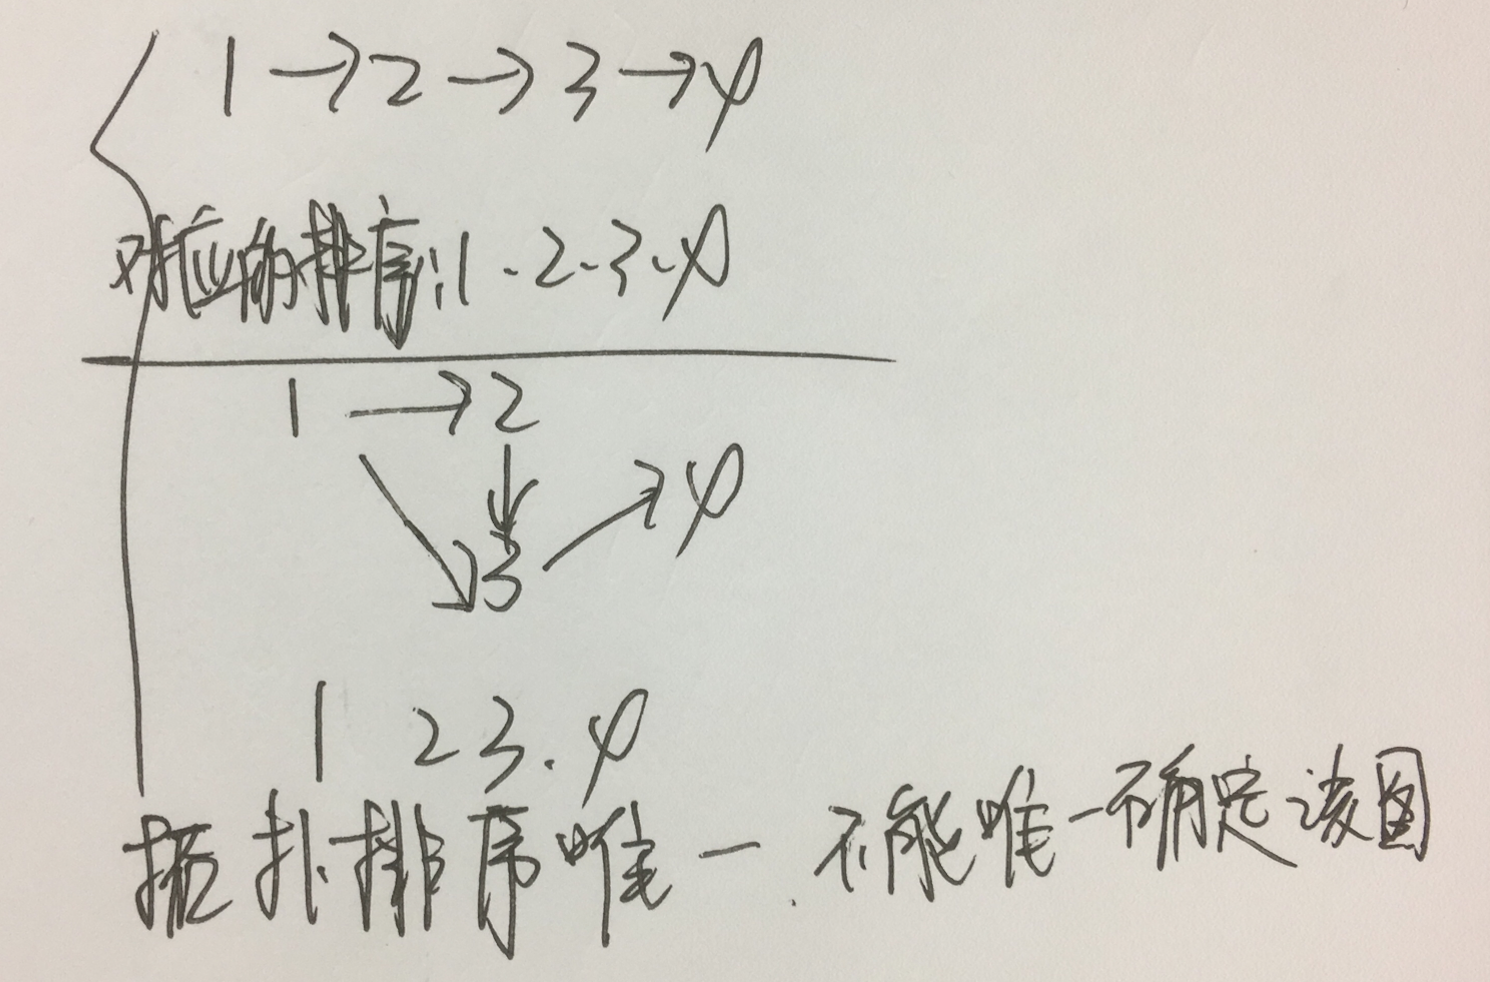 1→2→3→4
对应的排序:1.2.3.4
1→2
3→4
1 2 3.4
拓扑排序唯一.不能唯一确定该图